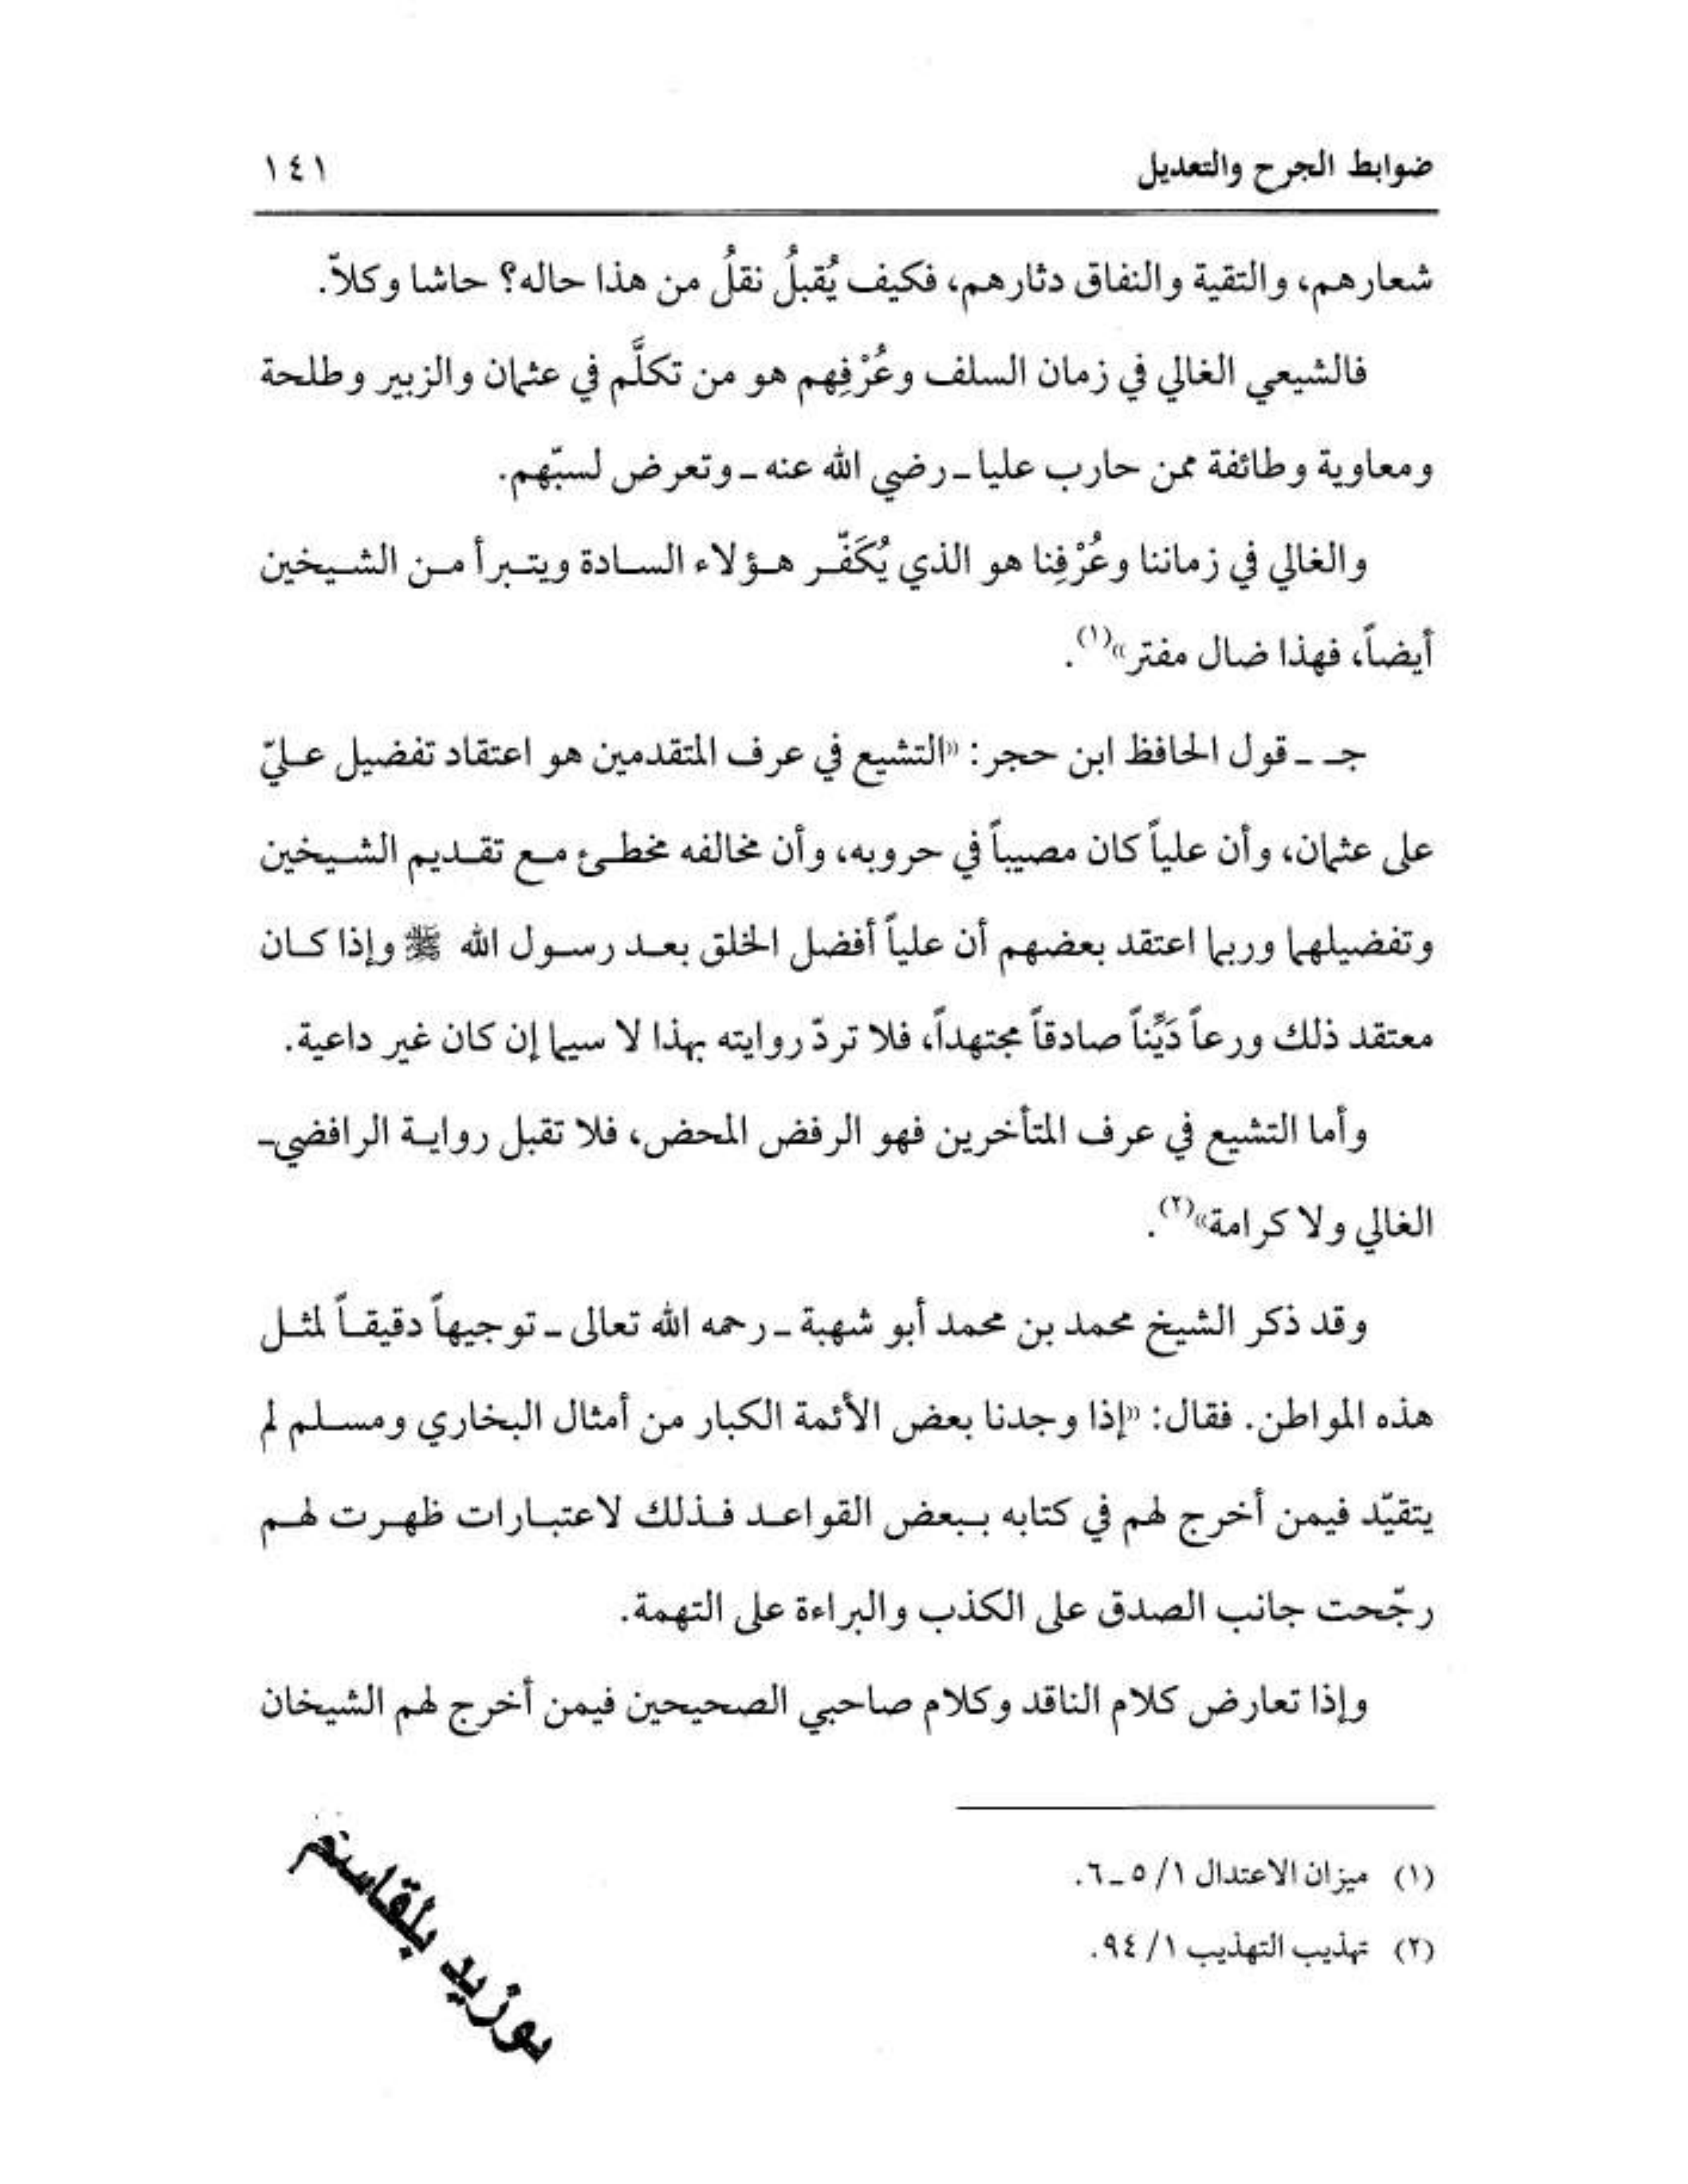 ضوابط الجرح والتعديل ١٤١
شعارهم، والتقية والنفاق دثارهم، فكيف يُقبلُ نقلُ من هذا حاله؟ حاشا وكلاّ.
فالشيعي الغالي في زمان السلف وعُرْفِهم هو من تكلَّم في عثمان والزبير وطلحة
ومعاوية وطائفة ممن حارب عليا ـ رضي الله عنه ـ وتعرض لسبّهم.
والغالي في زماننا وعُرْفِنا هو الذي يُكَفّر هؤلاء السادة ويتبرأ من الشيخين
أيضاً، فهذا ضال مفتر»(١).
جـ ـ قول الحافظ ابن حجر: «التشيع في عرف المتقدمين هو اعتقاد تفضيل عليّ
على عثمان، وأن علياً كان مصيباً في حروبه، وأن مخالفه مخطئ مع تقديم الشيخين
وتفضيلهما وربما اعتقد بعضهم أن علياً أفضل الخلق بعد رسول الله ﷺ وإذا كان
معتقد ذلك ورعاً دَيِّناً صادقاً مجتهداً، فلا تردّ روايته بهذا لا سيما إن كان غير داعية.
وأما التشيع في عرف المتأخرين فهو الرفض المحض، فلا تقبل رواية الرافضي
الغالي ولا كرامة»(٢).
وقد ذكر الشيخ محمد بن محمد أبو شهبة ـ رحمه الله تعالى ـ توجيهاً دقيقاً لمثل
هذه المواطن. فقال: «إذا وجدنا بعض الأئمة الكبار من أمثال البخاري ومسلم لم
يتقيّد فيمن أخرج لهم في كتابه ببعض القواعد فذلك لاعتبارات ظهرت لهم
رجّحت جانب الصدق على الكذب والبراءة على التهمة.
وإذا تعارض كلام الناقد وكلام صاحبي الصحيحين فيمن أخرج لهم الشيخان
(١) ميزان الاعتدال ١/ ٥ ـ ٦.
(٢) تهذيب التهذيب ١/ ٩٤.
بوزيد بلقاسم